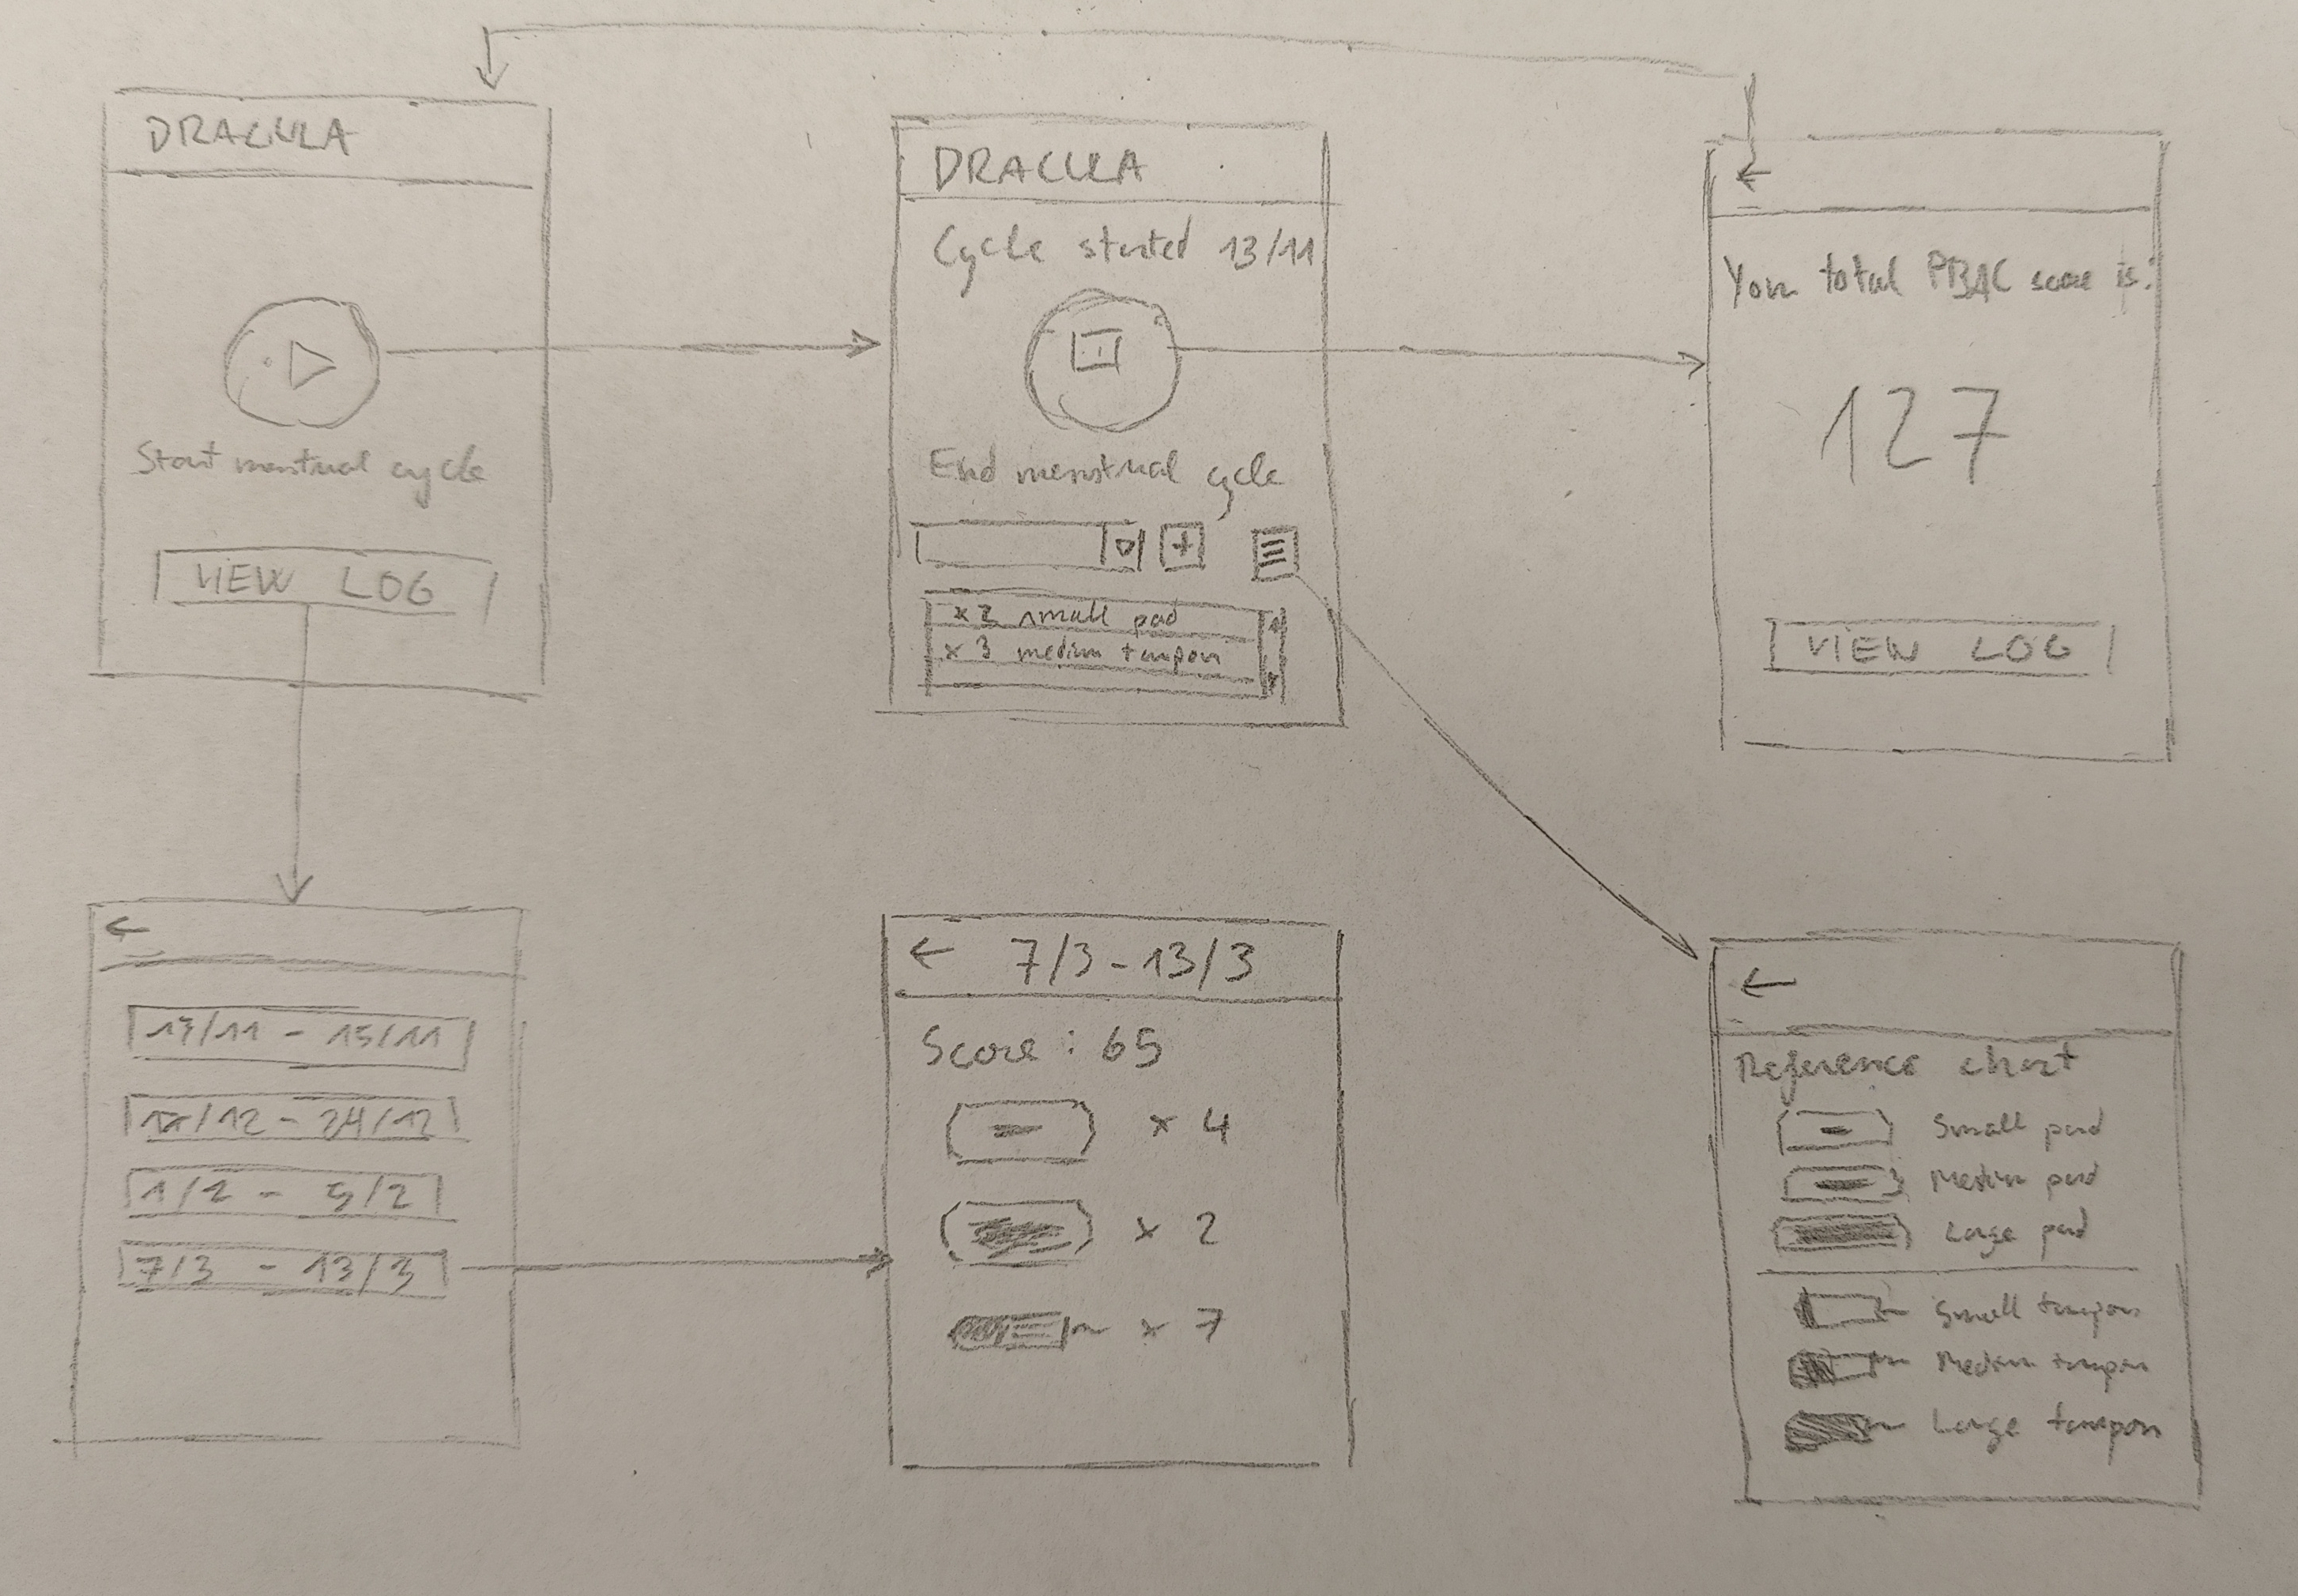 DRACULA
Start menstrual cycle
VIEW LOG
DRACULA
Cycle started 13/11
End menstrual cycle
x 2 small pad
x 3 medium tampon
Your total PBAC score is:
127
VIEW LOG
13/11 - 15/11
/12 - 24/12
1/2 - 5/2
7/3 - 13/3
7/3 - 13/3
Score: 65
x 4
x 2
x 7
Reference chart
Small pad
Medium pad
Large pad
Small tampon
Medium tampon
Large tampon